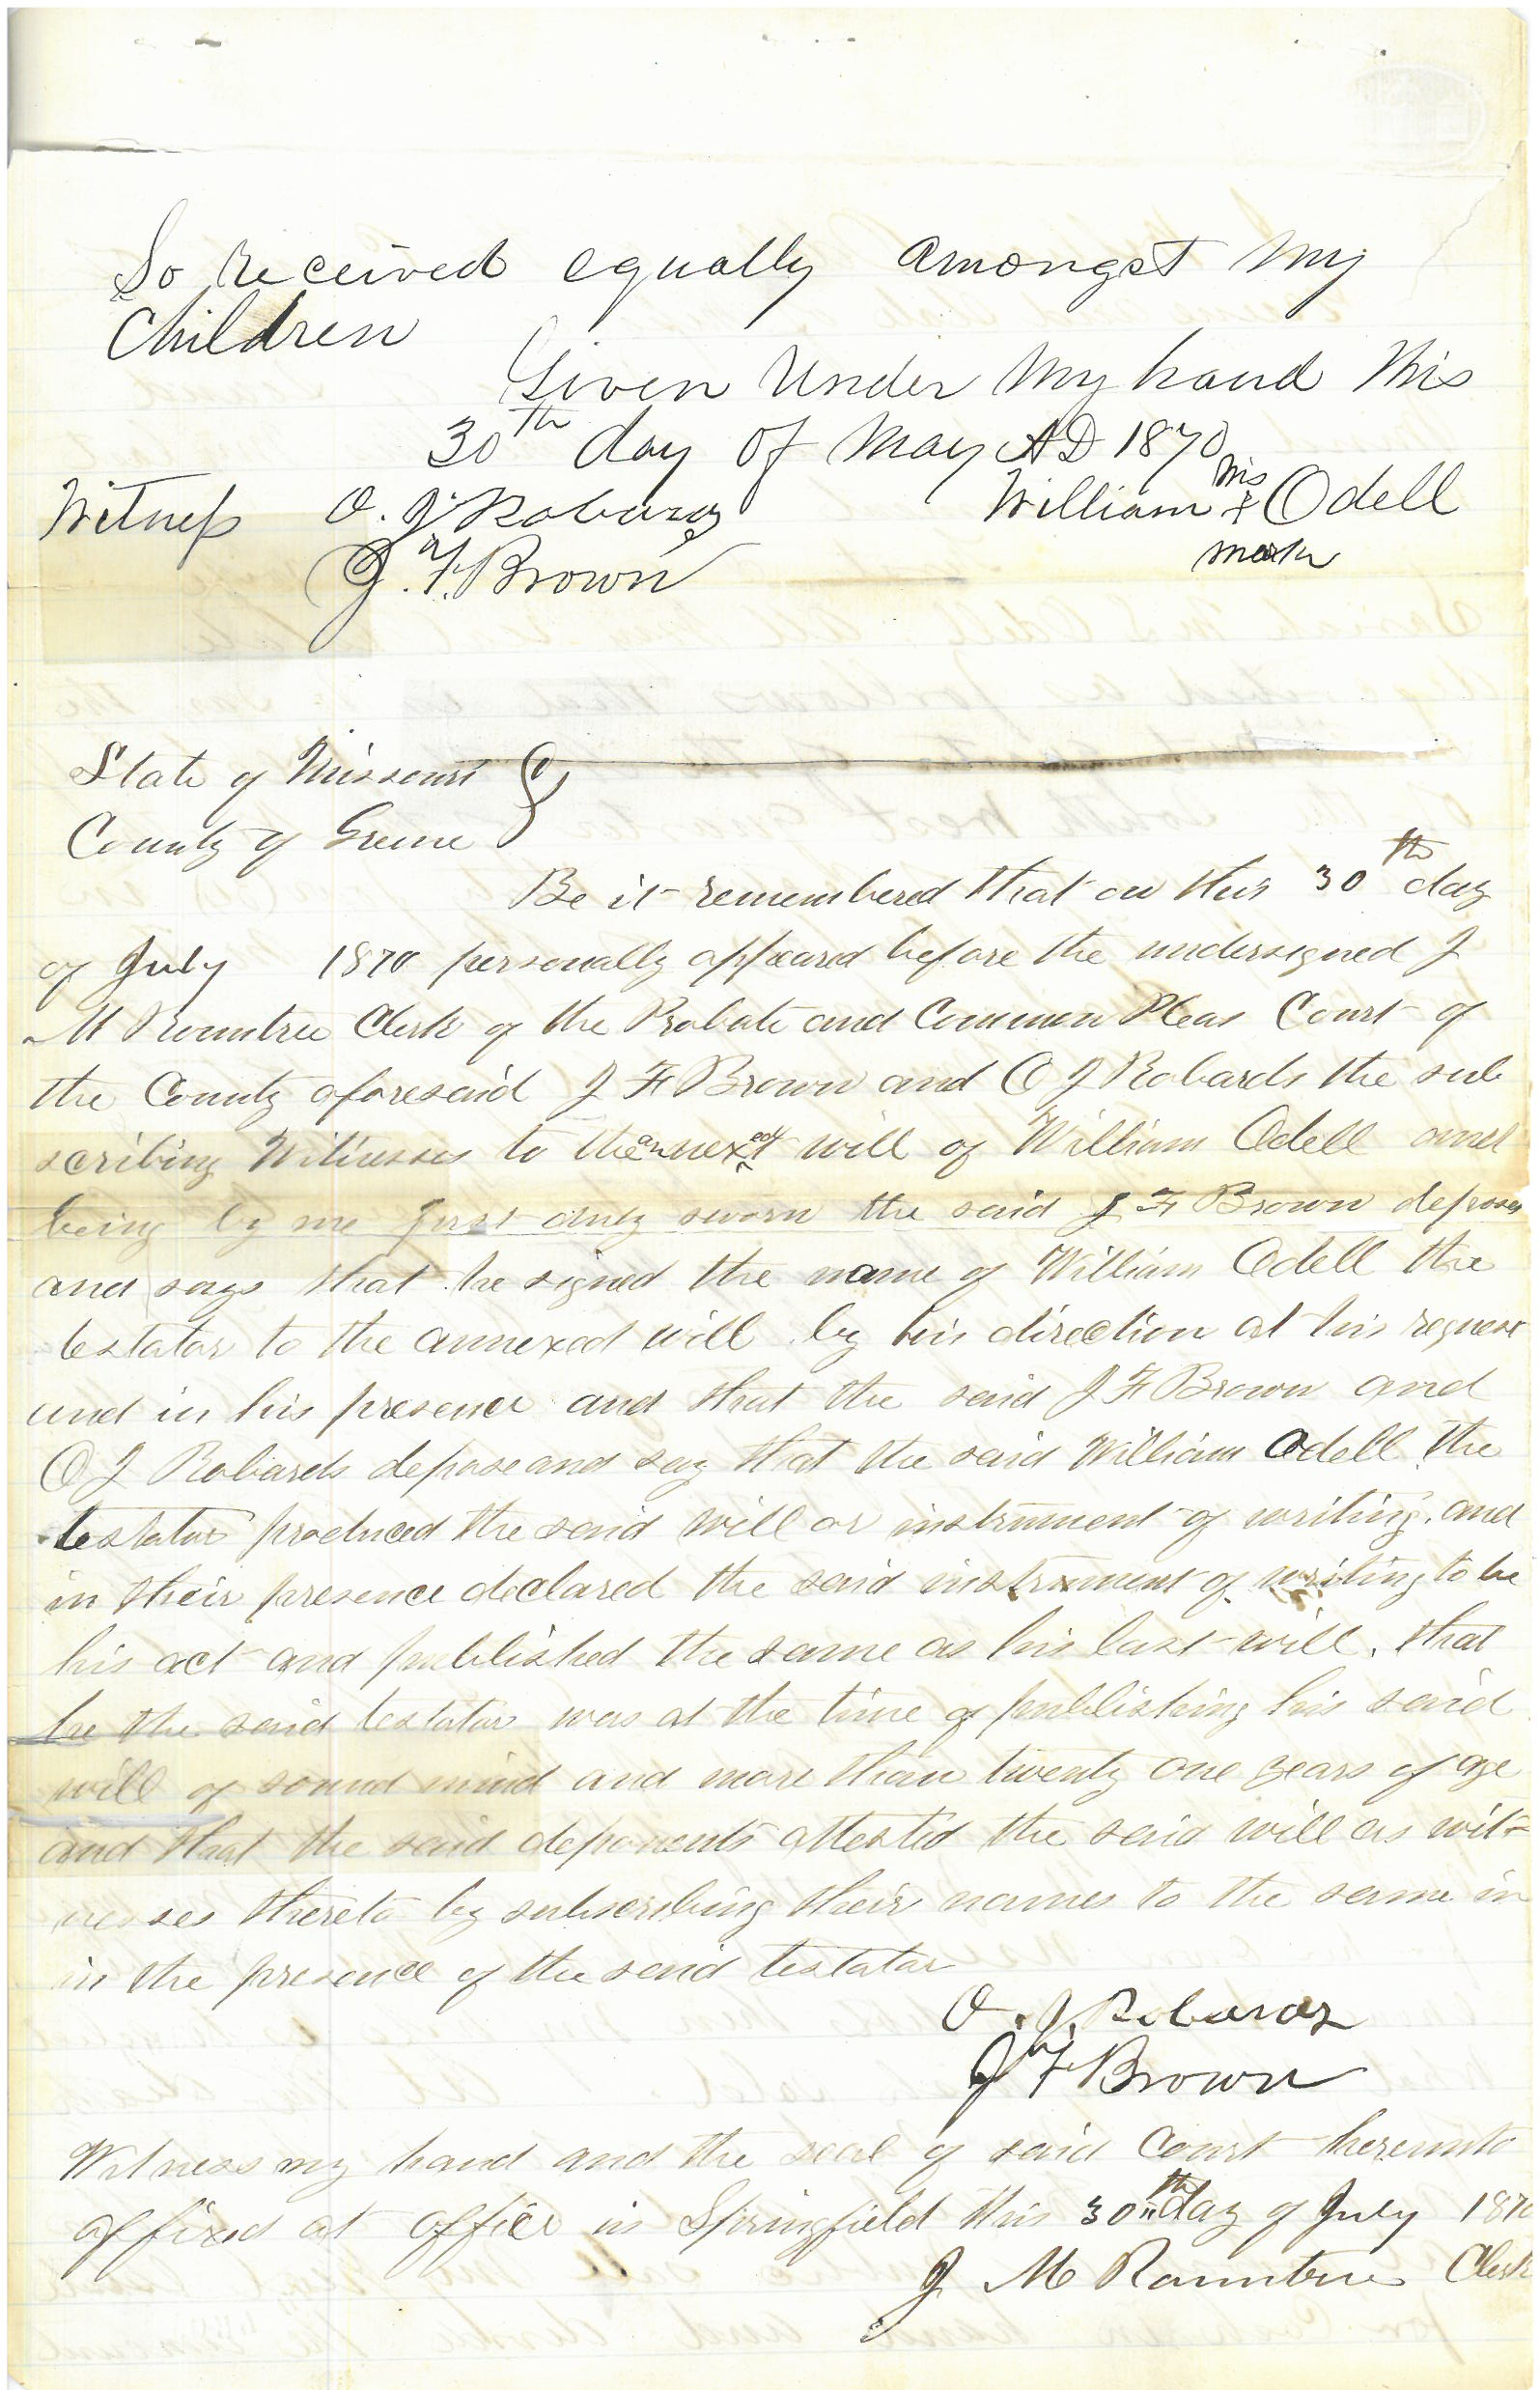 So received equally amongst my
Children
Given Under My hand This
30th day of May AD 1870
his
Witness O. J. Robards William + Odell
mark
J. F. Brown
State of Missouri
County of Greene
Be it remembered that on this 30th day
of July 1870 personally appeared before the undersigned J
M Rountree Clerk of the Probate and Common Pleas Court of
the County aforesaid J F Brown and O J Robards the sub
scribing Witnesses to the annexed will of William Odell and
being by me first duly sworn the said J F Brown deposes
and says that he signed the name of William Odell the
testator to the annexed will by his direction at his request
and in his presence and that the said J F Brown and
O J Robards depose and say that the said William Odell the
testator produced the said will or instrument of writing, and
in their presence declared the said instrument of writing to be
his act and published the same as his last will, that
he the said testator was at the time of publishing his said
will of sound mind and more than twenty one years of age
and that the said deponents attested the said will as wit-
nesses thereto by subscribing their names to the same in
in the presence of the said testator
O. J. Robards
J F Brown
Witness my hand and the seal of said Court hereunto
affixed at office in Springfield this 30th day of July 1870
J M Rountree Clerk